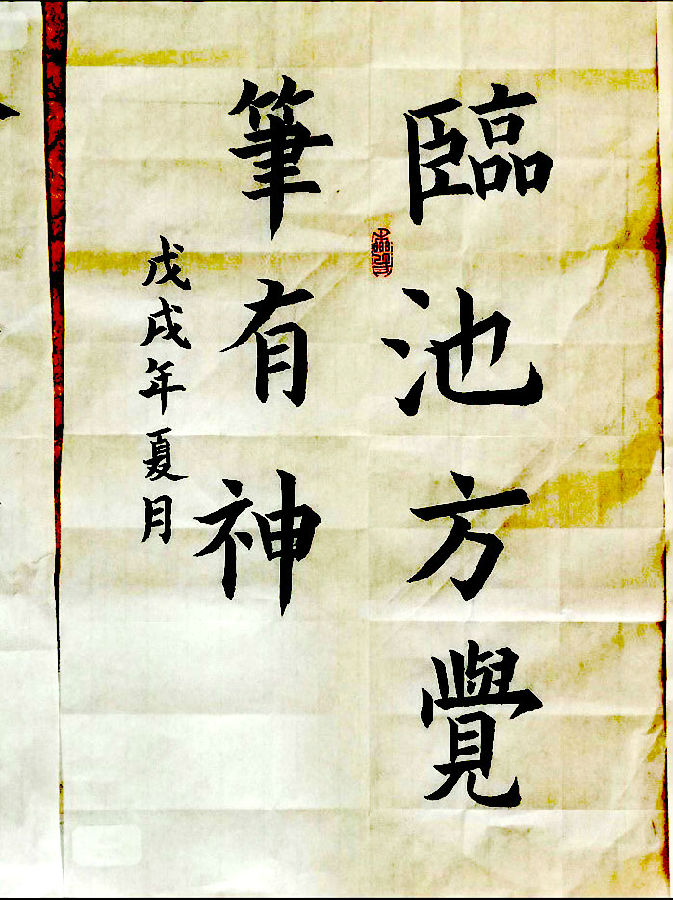 臨池方覺
筆有神
戊戌年夏月